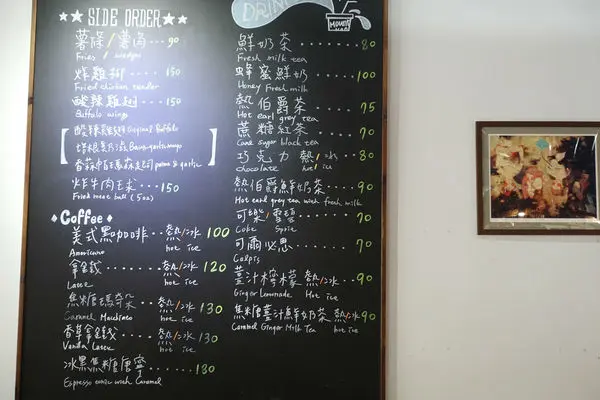 ★★ SIDE ORDER ★★
薯條/薯角 ‧‧ 90
Fries / wedges
炸雞柳 ‧‧‧‧ 150
Fried chicken tender
酸辣雞翅 ‧‧‧ 150
Buffalo wings
酸辣雞翅 Original Buffalo
炸牛肉玉米 ‧‧ 150
Fried meat ball (5oz)
♦Coffee♦
美式黑咖啡 ‧‧ 熱/冰 100
Americano hot ice
拿鐵 ‧‧‧‧‧‧ 熱/冰 120
Latte hot ice
焦糖瑪奇朵 熱/冰 130
Caramel Macchiato hot ice
香草拿鐵 ‧‧‧ 熱/冰 130
Vanilla Latte hot ice
冰黑焦糖唐寧 ‧‧‧‧ 180
Espresso tonic with Caramel
DRINK
鮮奶茶 ‧‧‧‧‧‧ 80
Fresh milk tea
蜂蜜鮮奶 ‧‧‧‧ 100
Honey Fresh milk
熱伯爵茶 ‧‧‧‧ 75
Hot earl grey tea
蔗糖紅茶 ‧‧‧‧ 70
Cane sugar black tea
巧克力 熱/冰 ‧‧ 80
chocolate hot ice
熱伯爵鮮奶茶 ‧‧‧ 90
Hot earl grey tea with fresh milk
可樂/雪碧 ‧‧‧‧ 70
Coke Sprite
可爾必思 ‧‧‧‧ 70
Calpis
薑汁檸檬 熱/冰 ‧‧ 90
Ginger Lemonade Hot ice
焦糖薑汁鮮奶茶 熱/冰 90
Caramel Ginger Milk Tea Hot ice